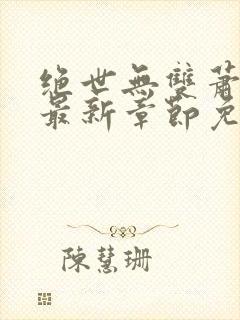 絕世無雙蕭
最新章節免
陳慧珊